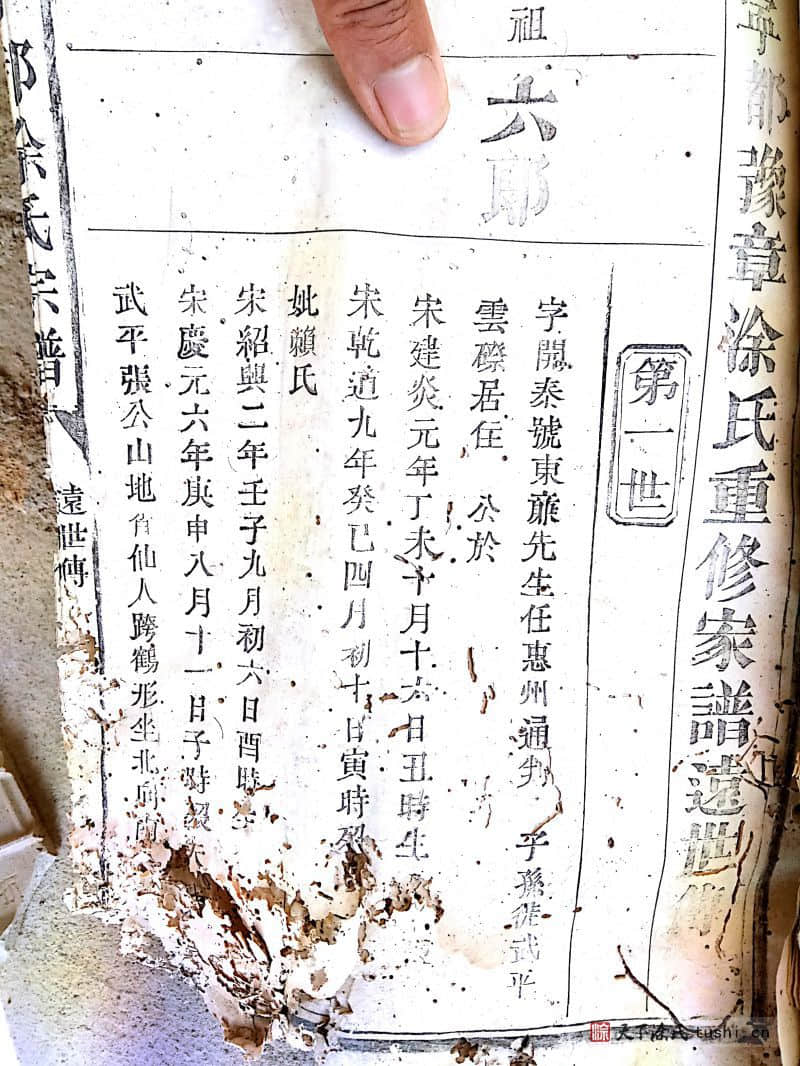 寧都豫章涂氏重修家譜遠世傳
第一世
祖
六郎
字開泰號東蘼先生任惠州通判 子孫徙武平
雲礤居住 公於
宋建炎元年丁未十月十六日丑時生
宋乾道九年癸巳四月初十日寅時歿
妣賴氏
宋紹興二年壬子九月初六日酉時生
宋慶元六年庚申八月十一日子時歿
武平張公山地有仙人跨鶴形坐北向南
都涂氏宗譜
遠世傳
天下涂氏 tushi.cn